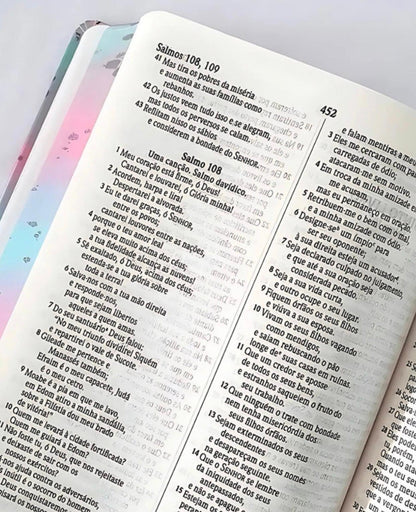 Salmos 108, 109
452
41 Mas tira os pobres da miséria
e aumenta as suas famílias como
rebanhos.
42 Os justos veem tudo isso e se alegram,
mas todos os perversos se calam.
43 Reflitam nisso os sábios
e considerem a bondade do SENHOR.
Salmo 108
Uma canção. Salmo davídico.
1 Meu coração está firme, ó Deus!
Cantarei e louvarei, ó Glória minha!
2 Acordem, harpa e lira!
Despertarei a alvorada.
3 Eu te darei graças, ó SENHOR,
entre os povos;
cantarei louvores entre as nações,
4 porque o teu amor leal
se eleva muito acima dos céus;
a tua fidelidade alcança as nuvens!
5 Sê exaltado, ó Deus, acima dos céus;
estenda-se a tua glória sobre
toda a terra!
6 Salva-nos com a tua mão direita
e responde-nos,
para que sejam libertos
aqueles a quem amas.
7 Do seu santuário Deus falou:
"No meu triunfo dividirei Siquém
e repartirei o vale de Sucote.
8 Gileade me pertence e
Manassés também;
Efraim é o meu capacete, Judá
é o meu cetro.
9 Moabe é a pia em que me lavo,
em Edom atiro a minha sandália,
sobre a Filístia dou meu brado
de vitória!"
10 Quem me levará à cidade fortificada?
Quem me guiará a Edom?
11 Não foste tu, ó Deus, que nos rejeitaste
e deixaste de sair com os
nossos exércitos?
ajuda contra os adversários,
inútil é o socorro do homem.
Deus conquistaremos
e falam mentiras a
3 Eles me cercaram
carregadas de ódio;
atacam-me sem motivo.
4 Em troca da minha amizade
me acusam,
mas eu permaneço em oração.
5 Retribuem-me o bem com o mal,
e a minha amizade com ódio.
6 Designe-se um ímpio
como seu oponente;
à sua direita esteja um acusador.
7 Seja declarado culpado no julgamento,
e que até a sua oração seja
considerada pecado.
8 Seja a sua vida curta,
e outro ocupe o seu lugar.
9 Fiquem órfãos os seus filhos
e viúva a sua esposa.
10 Vivam os seus filhos vagando
como mendigos,
e saiam rebuscando o pão
longe de suas casas em ruínas.
11 Que um credor se aposse
de todos os seus bens,
e estranhos saqueiem o fruto do
seu trabalho.
12 Que ninguém o trate com bondade
nem tenha misericórdia dos
seus filhos órfãos.
13 Sejam exterminados os seus
descendentes
e desapareçam os seus nomes
na geração seguinte.
14 Que o SENHOR se lembre
da iniquidade dos seus
antepassados,
e não se apague o
15 Estejam os